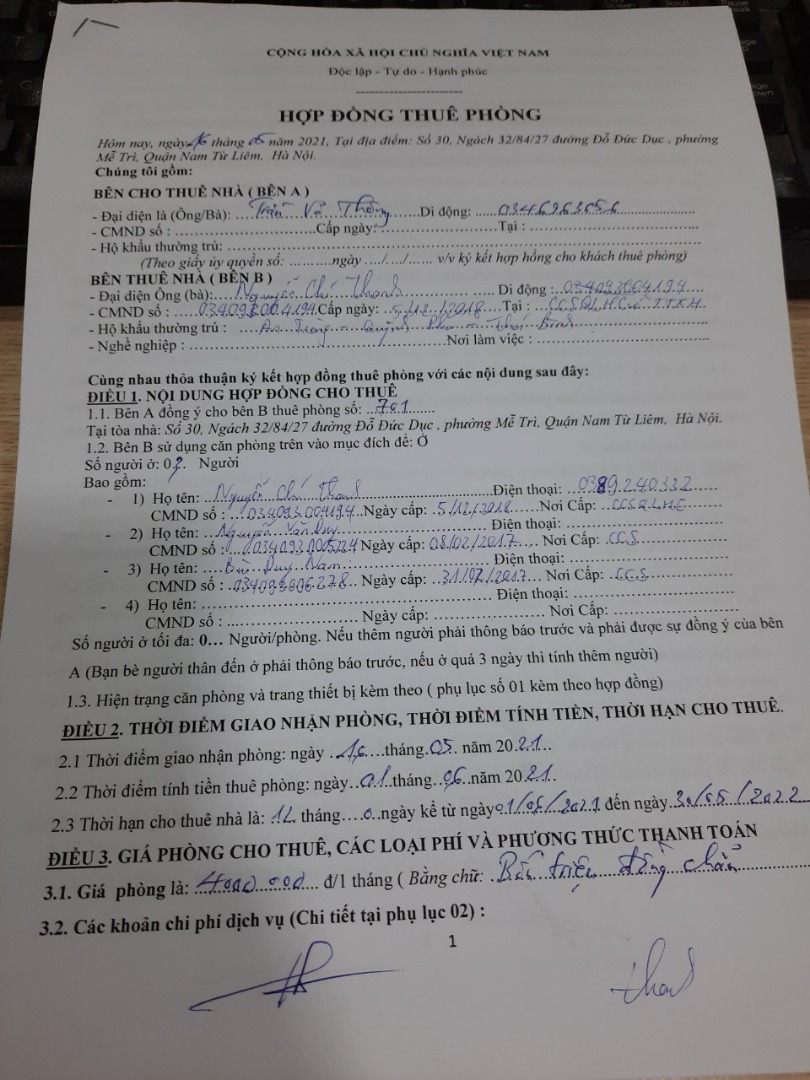 CỘNG HÒA XÃ HỘI CHỦ NGHĨA VIỆT NAM
Độc lập - Tự do - Hạnh phúc
HỢP ĐỒNG THUÊ PHÒNG
Hôm nay, ngày 16 tháng 05 năm 2021, Tại địa điểm: Số 30, Ngách 32/84/27 đường Đỗ Đức Dục , phường
Mễ Trì, Quận Nam Từ Liêm, Hà Nội.
Chúng tôi gồm:
BÊN CHO THUÊ NHÀ ( BÊN A )
- Đại diện là (Ông/Bà): Trần Võ Thông Di động: 0346963656
- CMND số : Cấp ngày: Tại :
- Hộ khẩu thường trú:
(Theo giấy ủy quyền số: ngày …/…/…… v/v ký kết hợp hồng cho khách thuê phòng)
BÊN THUÊ NHÀ ( BÊN B )
- Đại diện Ông (bà): Nguyễn Chí Thanh Di động : 034093004194
- CMND số : 034093004194 Cấp ngày: 5/12/2018 Tại :
- Hộ khẩu thường trú : Quỳnh Phụ - Thái Bình
- Nghề nghiệp : Nơi làm việc :
Cùng nhau thỏa thuận ký kết hợp đồng thuê phòng với các nội dung sau đây:
ĐIỀU 1. NỘI DUNG HỢP ĐỒNG CHO THUÊ
1.1. Bên A đồng ý cho bên B thuê phòng số: 701
Tại tòa nhà: Số 30, Ngách 32/84/27 đường Đỗ Đức Dục , phường Mễ Trì, Quận Nam Từ Liêm, Hà Nội.
1.2. Bên B sử dụng căn phòng trên vào mục đích để: Ở
Số người ở: Người
Bao gồm:
- 1) Họ tên: Nguyễn Chí Thanh Điện thoại: 0389240332
CMND số : 034093004194 Ngày cấp: 5/12/2018 Nơi Cấp: CCSQLHC
- 2) Họ tên: Nguyễn Văn Duy Điện thoại:
CMND số : 034093005224 Ngày cấp: 08/02/2017 Nơi Cấp: CCS
- 3) Họ tên: Bùi Duy Nam Điện thoại:
CMND số : 034093006278 Ngày cấp: 31/07/2017 Nơi Cấp: CCS
- 4) Họ tên: Điện thoại:
CMND số : Ngày cấp: Nơi Cấp:
Số người ở tối đa: 0… Người/phòng. Nếu thêm người phải thông báo trước và phải được sự đồng ý của bên
A (Bạn bè người thân đến ở phải thông báo trước, nếu ở quá 3 ngày thì tính thêm người)
1.3. Hiện trạng căn phòng và trang thiết bị kèm theo ( phụ lục số 01 kèm theo hợp đồng)
ĐIỀU 2. THỜI ĐIỂM GIAO NHẬN PHÒNG, THỜI ĐIỂM TÍNH TIỀN, THỜI HẠN CHO THUÊ.
2.1 Thời điểm giao nhận phòng: ngày 16 tháng 05 năm 2021
2.2 Thời điểm tính tiền thuê phòng: ngày 01 tháng 06 năm 2021
2.3 Thời hạn cho thuê nhà là: 12 tháng 0 ngày kể từ ngày 01/06/2021 đến ngày 30/05/2022
ĐIỀU 3. GIÁ PHÒNG CHO THUÊ, CÁC LOẠI PHÍ VÀ PHƯƠNG THỨC THANH TOÁN
3.1. Giá phòng là: 4000.000 đ/1 tháng ( Bằng chữ: Bốn triệu đồng chẵn
3.2. Các khoản chi phí dịch vụ (Chi tiết tại phụ lục 02) :
1